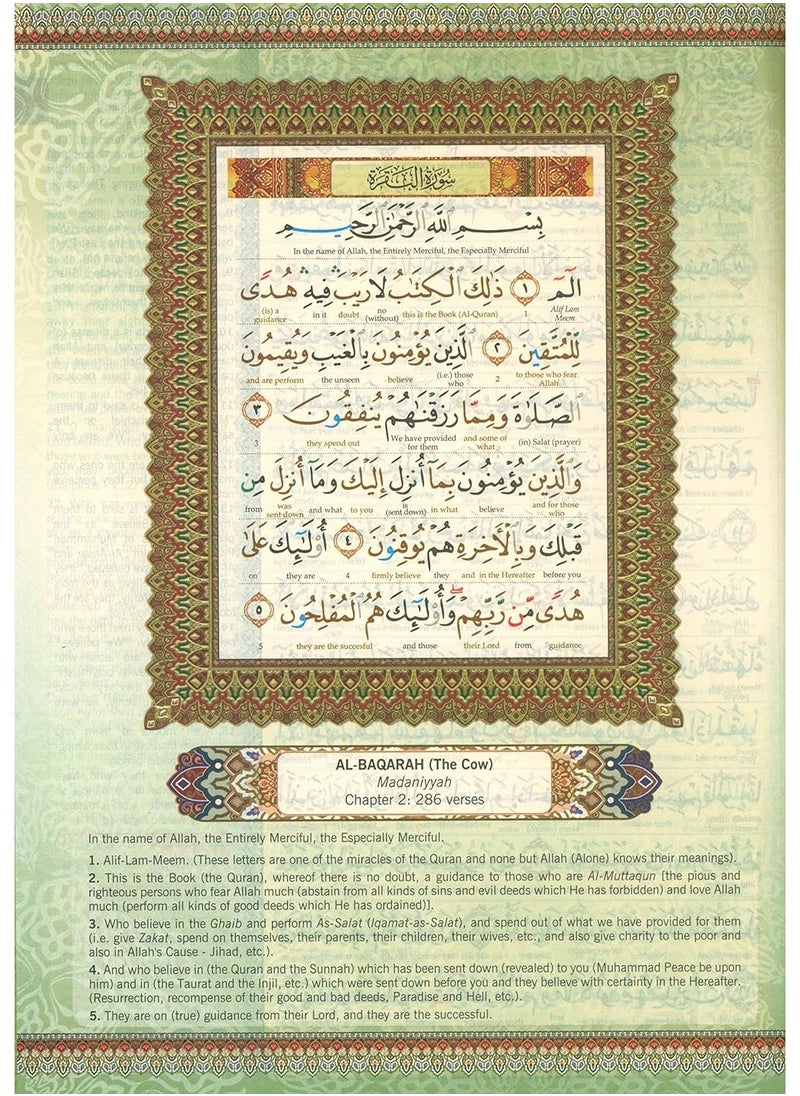 سُورَةُ الْبَقَرَة
بِسْمِ اللَّهِ الرَّحْمَٰنِ الرَّحِيمِ
In the name of Allah, the Entirely Merciful, the Especially Merciful
الٓمٓ ١ ذَٰلِكَ الْكِتَٰبُ لَا رَيْبَ ۛ فِيهِ ۛ هُدًى
Alif Lam Meem 1 this is the Book (Al-Quran) no (without) doubt in it (is) a guidance
لِّلْمُتَّقِينَ ٢ الَّذِينَ يُؤْمِنُونَ بِالْغَيْبِ وَيُقِيمُونَ
to those who fear Allah 2 (i.e.) those who believe the unseen and are perform
الصَّلَوٰةَ وَمِمَّا رَزَقْنَٰهُمْ يُنفِقُونَ ٣
(in) Salat (prayer) and some of what We have provided for them they spend out 3
وَالَّذِينَ يُؤْمِنُونَ بِمَآ أُنزِلَ إِلَيْكَ وَمَآ أُنزِلَ مِن
and for those who believe in what is (sent down) to you and what was sent down from
قَبْلِكَ وَبِالْأَخِرَةِ هُمْ يُوقِنُونَ ٤ أُو۟لَٰٓئِكَ عَلَىٰ
before you and in the Hereafter they firmly believe 4 they are on
هُدًى مِّن رَّبِّهِمْ ۖ وَأُو۟لَٰٓئِكَ هُمُ الْمُفْلِحُونَ ٥
guidance from their Lord and those they are the succesful 5
AL-BAQARAH (The Cow)
Madaniyyah
Chapter 2: 286 verses
In the name of Allah, the Entirely Merciful, the Especially Merciful.
1. Alif-Lam-Meem. (These letters are one of the miracles of the Quran and none but Allah (Alone) knows their meanings).
2. This is the Book (the Quran), whereof there is no doubt, a guidance to those who are Al-Muttaqun [the pious and
righteous persons who fear Allah much (abstain from all kinds of sins and evil deeds which He has forbidden) and love Allah
much (perform all kinds of good deeds which He has ordained)].
3. Who believe in the Ghaib and perform As-Salat (Iqamat-as-Salat), and spend out of what we have provided for them
(i.e. give Zakat, spend on themselves, their parents, their children, their wives, etc., and also give charity to the poor and
also in Allah's Cause - Jihad, etc.).
4. And who believe in (the Quran and the Sunnah) which has been sent down (revealed) to you (Muhammad Peace be upon
him) and in (the Taurat and the Injil, etc.) which were sent down before you and they believe with certainty in the Hereafter.
(Resurrection, recompense of their good and bad deeds, Paradise and Hell, etc.).
5. They are on (true) guidance from their Lord, and they are the successful.